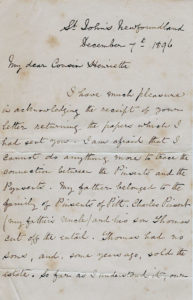 St John's Newfoundland
December 7th 1896
My dear Cousin Henriette
I have much pleasure
in acknowledging the receipt of your
letter returning the papers which I
had sent you. I am afraid that I
cannot do anything more to trace the
connection between the Pinsents and the
Pynsents. My father belonged to the
family of Pinsents of Pitt. Charles Pinsent
(my father's uncle) and his son Thomas
cut off the entail. Thomas had no
sons, and, some years ago, sold the
estate. So far as I understand it, our